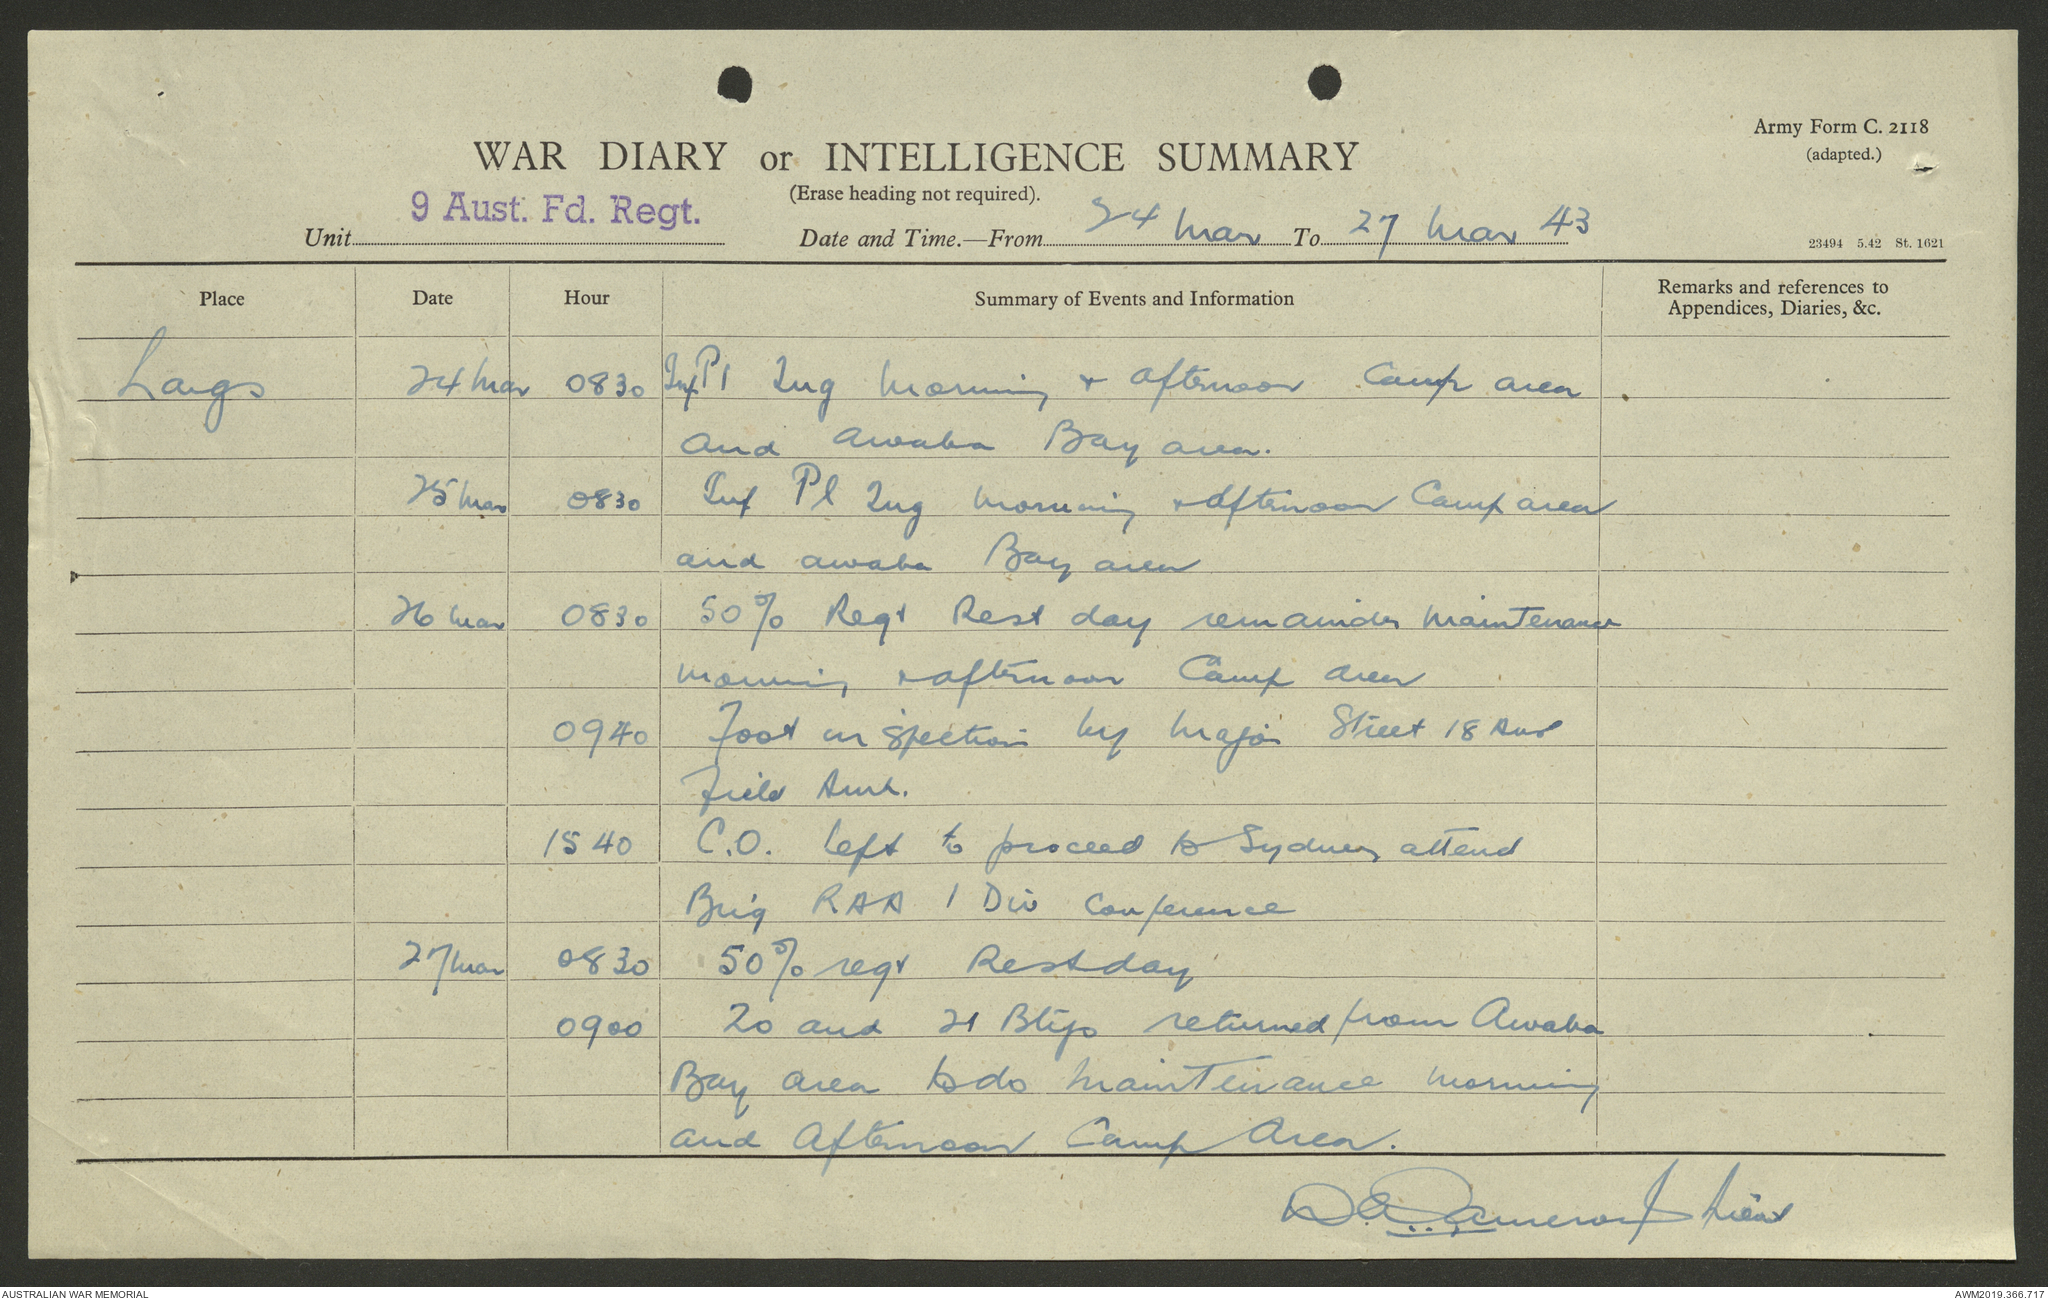 Army Form C. 2118
(adapted.)
WAR DIARY or INTELLIGENCE SUMMARY
(Erase heading not required).
Unit 9 Aust. Fd. Regt.
Date and Time.—From 24 Mar To 27 Mar 43
23494 5.42 St. 1621
Place Date Hour Summary of Events and Information Remarks and references to
Appendices, Diaries, &c.
Largs 24 Mar 0830 Inf Pl Tng morning + afternoon Camp area
and Awaba Bay area.
25 Mar 0830 Inf Pl Tng morning + afternoon Camp area
and awaba Bay area
26 Mar 0830 50% Regt Rest day remainder Maintenance
morning + afternoon Camp area
0940 Foot inspection by Major Street 18 Aust
Field Amb.
1540 C.O. left to proceed to Sydney attend
Brig RAA 1 Div Conference
27 Mar 0830 50% regt Rest day
0900 20 and 21 Btys returned from Awaba
Bay area to do Maintenance morning
and Afternoon Camp Area.
Cameron Lieut
AUSTRALIAN WAR MEMORIAL
AWM2019.366.717